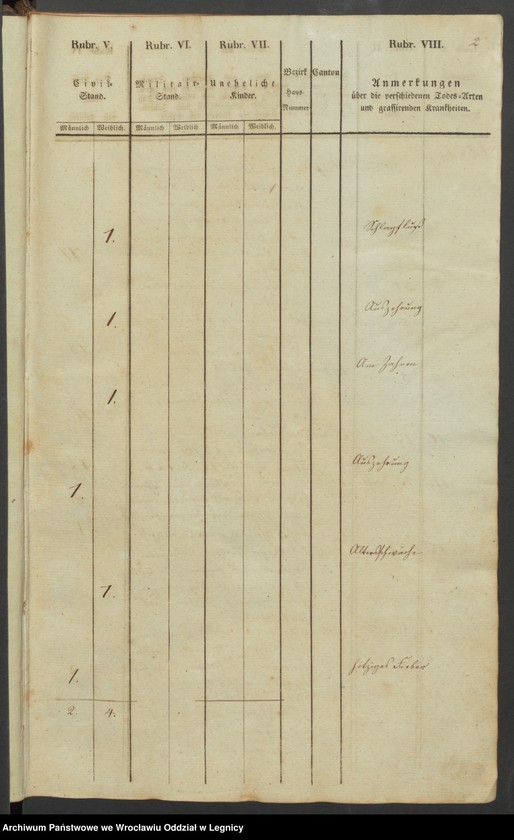 2
Rubr. V. Rubr. VI. Rubr. VII. Rubr. VIII.
Civil-
Stand.
Militair-
Stand.
Uneheliche
Kinder.
Bezirk
Haus-
Nummer
Canton
Anmerkungen
über die verschiedenen Todes-Arten
und graffirenden Krankheiten.
Männlich Weiblich. Männlich Weiblich Männlich Weiblich.
1. Schlagfluß
1. Auszehrung
1. Am Zahnen
1. Auszehrung
1. Altersschwäche
1. hitziges Fieber
2. 4.
Archiwum Państwowe we Wrocławiu Oddział w Legnicy